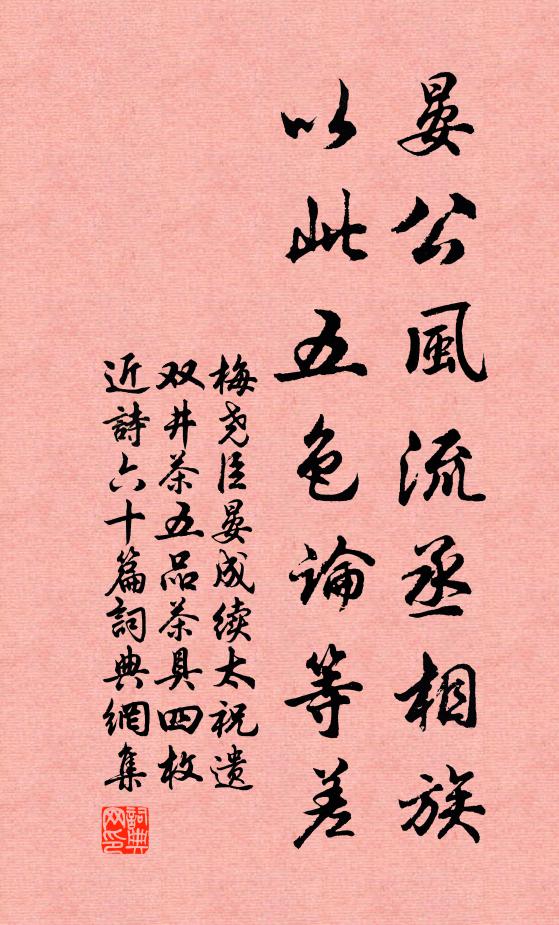 晏公風流丞相族
以此五色論等差
梅尧臣晏成续太祝遗
双井茶五品茶具四枚
近詩六十篇詞典網集
詞典网印